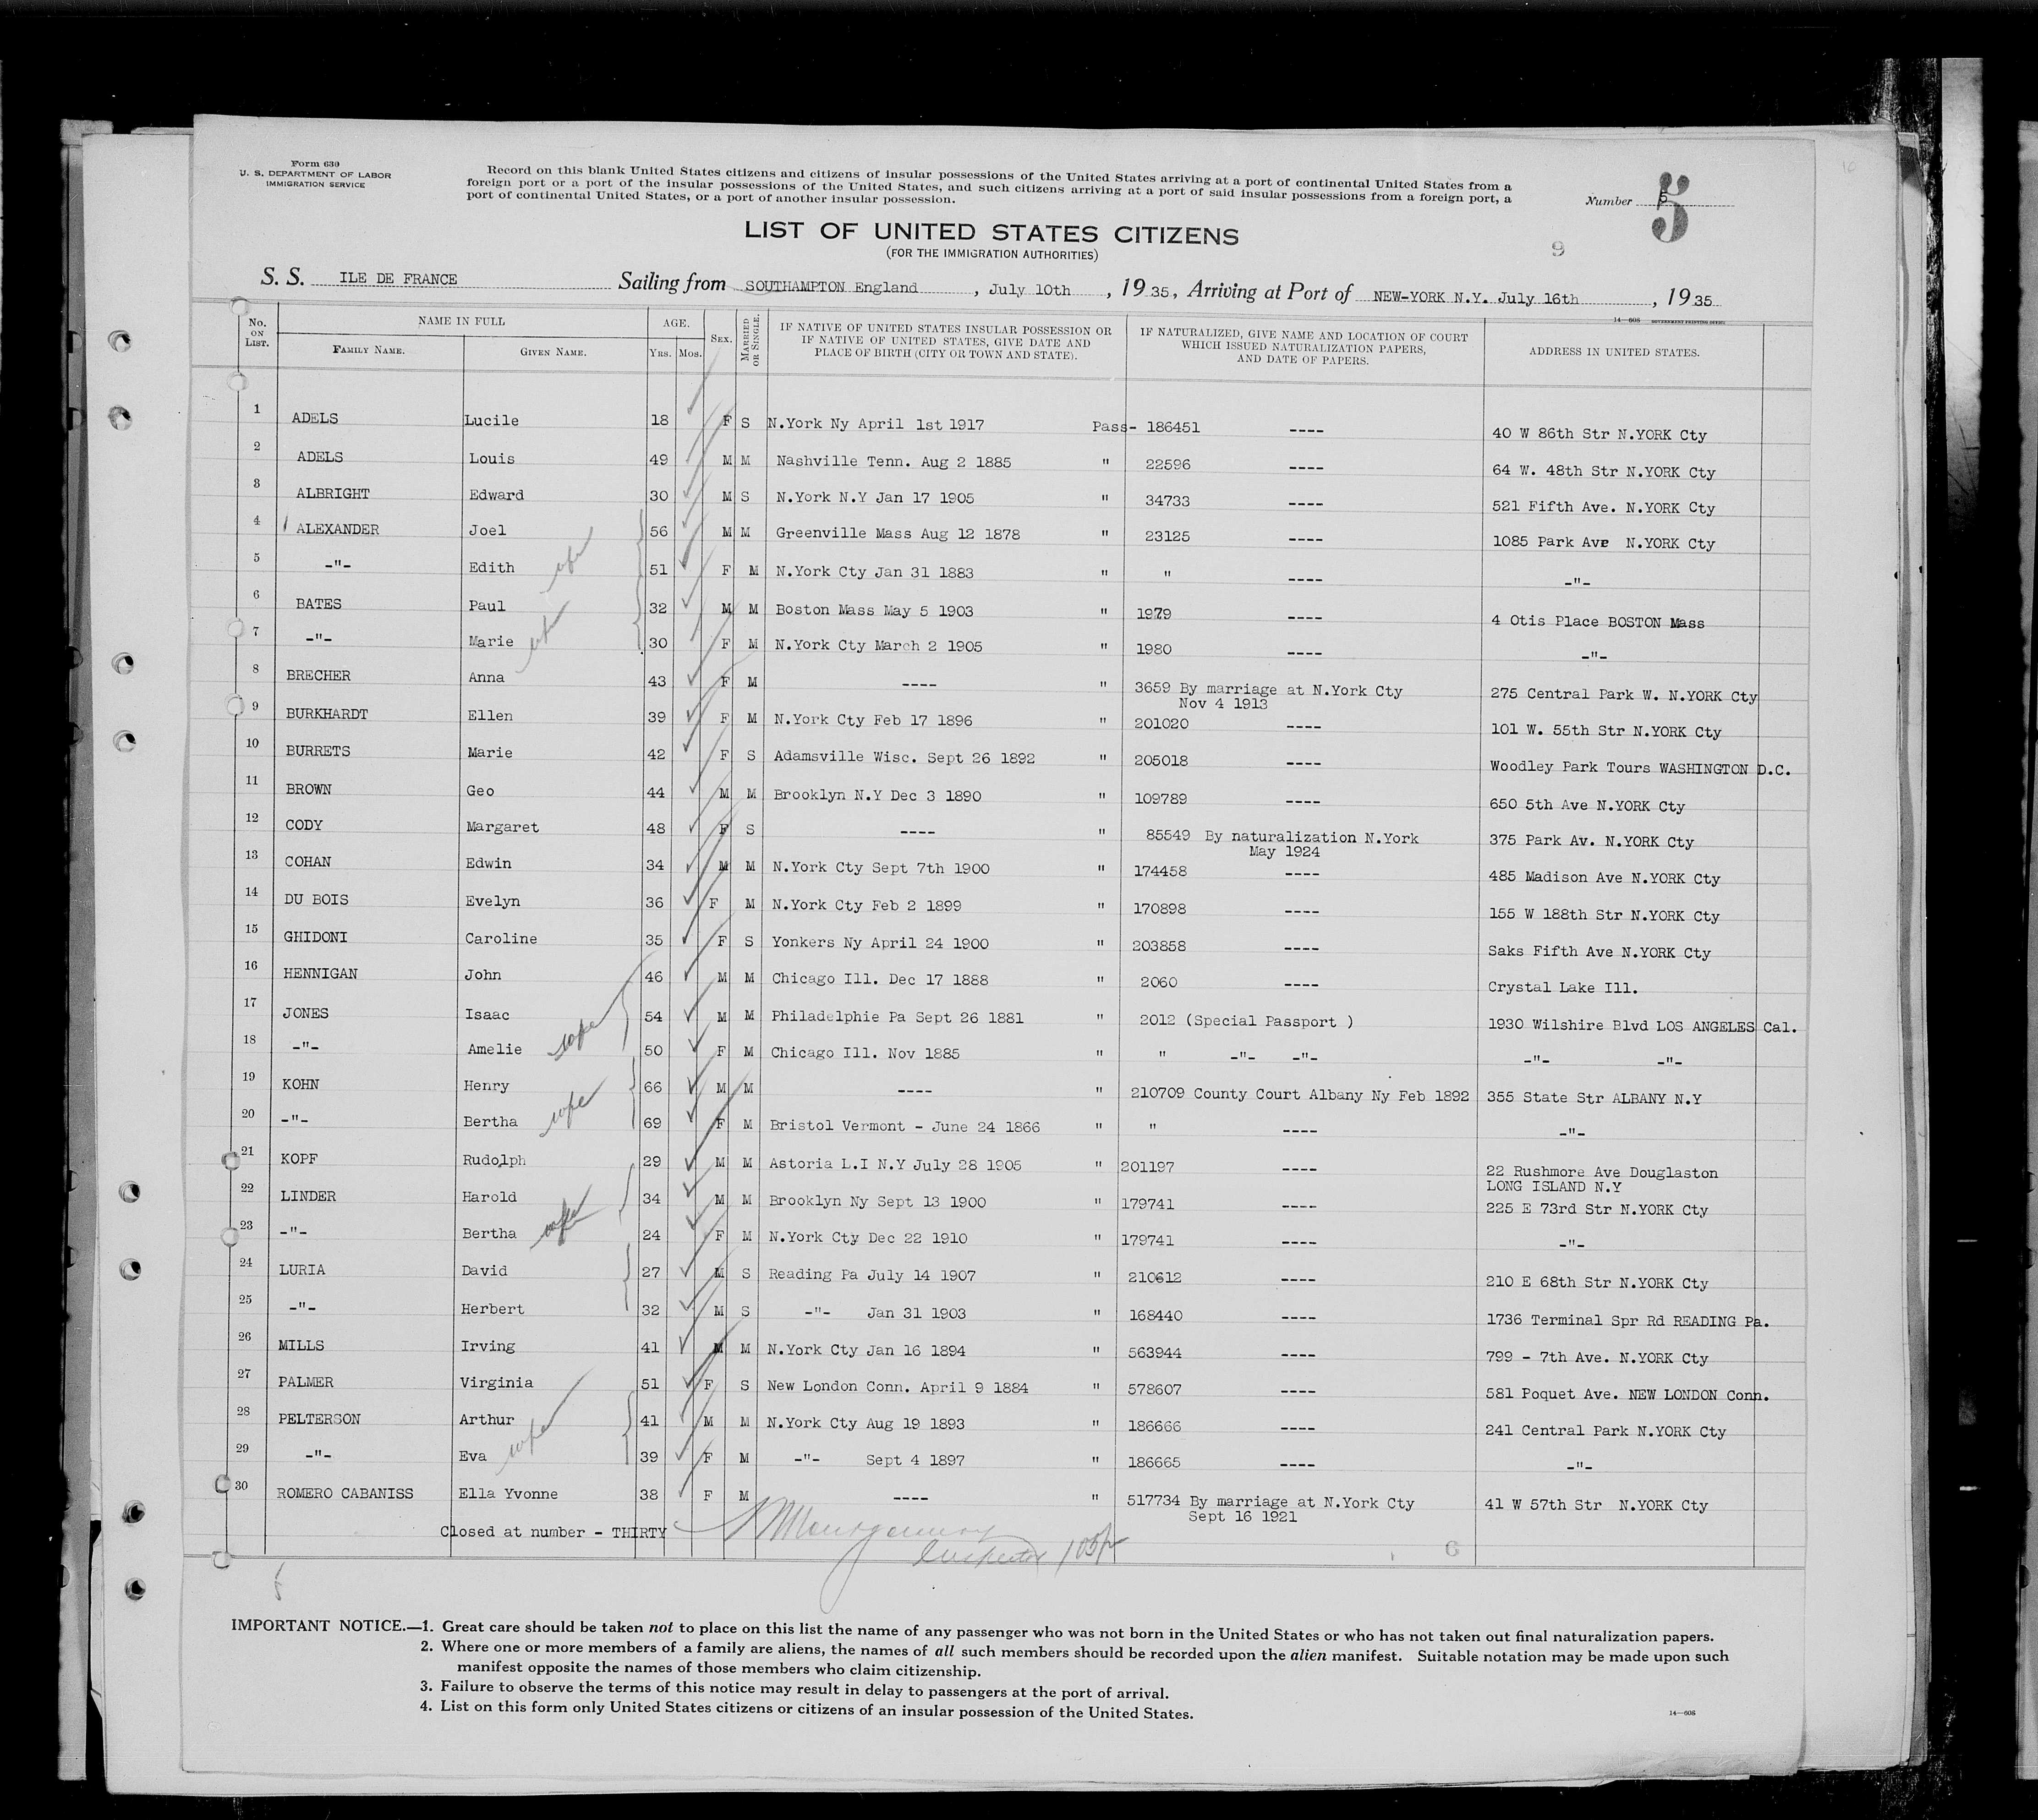 Form 630
U. S. DEPARTMENT OF LABOR
IMMIGRATION SERVICE
Record on this blank United States citizens and citizens of insular possessions of the United States arriving at a port of continental United States from a
foreign port or a port of the insular possessions of the United States, and such citizens arriving at a port of said insular possessions from a foreign port, a
port of continental United States, or a port of another insular possession.
Number 5
5
LIST OF UNITED STATES CITIZENS
(FOR THE IMMIGRATION AUTHORITIES)
9
S. S. ILE DE FRANCE Sailing from SOUTHAMPTON England, July 10th, 1935, Arriving at Port of NEW-YORK N.Y. July 16th, 1935
14—608 GOVERNMENT PRINTING OFFICE
No. ON LIST. NAME IN FULL FAMILY NAME. GIVEN NAME. AGE. YRS. MOS. SEX. MARRIED OR SINGLE. IF NATIVE OF UNITED STATES INSULAR POSSESSION OR IF NATIVE OF UNITED STATES, GIVE DATE AND PLACE OF BIRTH (CITY OR TOWN AND STATE). IF NATURALIZED, GIVE NAME AND LOCATION OF COURT WHICH ISSUED NATURALIZATION PAPERS, AND DATE OF PAPERS. ADDRESS IN UNITED STATES.
1 ADELS Lucile 18 F S N.York Ny April 1st 1917 Pass- 186451 ---- 40 W 86th Str N.YORK Cty
2 ADELS Louis 49 M M Nashville Tenn. Aug 2 1885 " 22596 ---- 64 W. 48th Str N.YORK Cty
3 ALBRIGHT Edward 30 M S N.York N.Y Jan 17 1905 " 34733 ---- 521 Fifth Ave. N.YORK Cty
4 ALEXANDER Joel 56 M M Greenville Mass Aug 12 1878 " 23125 ---- 1085 Park Ave N.YORK Cty
5 -"- Edith wife 51 F M N.York Cty Jan 31 1883 " " ---- -"-
6 BATES Paul 32 M M Boston Mass May 5 1903 " 1979 ---- 4 Otis Place BOSTON Mass
7 -"- Marie wife 30 F M N.York Cty March 2 1905 " 1980 ---- -"-
8 BRECHER Anna 43 F M ---- " 3659 By marriage at N.York Cty 275 Central Park W. N.YORK Cty
Nov 4 1913
9 BURKHARDT Ellen 39 F M N.York Cty Feb 17 1896 " 201020 ---- 101 W. 55th Str N.YORK Cty
10 BURRETS Marie 42 F S Adamsville Wisc. Sept 26 1892 " 205018 ---- Woodley Park Tours WASHINGTON D.C.
11 BROWN Geo 44 M M Brooklyn N.Y Dec 3 1890 " 109789 ---- 650 5th Ave N.YORK Cty
12 CODY Margaret 48 F S ---- " 85549 By naturalization N.York 375 Park Av. N.YORK Cty
May 1924
13 COHAN Edwin 34 M M N.York Cty Sept 7th 1900 " 174458 ---- 485 Madison Ave N.YORK Cty
14 DU BOIS Evelyn 36 F M N.York Cty Feb 2 1899 " 170898 ---- 155 W 188th Str N.YORK Cty
15 GHIDONI Caroline 35 F S Yonkers Ny April 24 1900 " 203858 ---- Saks Fifth Ave N.YORK Cty
16 HENNIGAN John 46 M M Chicago Ill. Dec 17 1888 " 2060 ---- Crystal Lake Ill.
17 JONES Isaac 54 M M Philadelphie Pa Sept 26 1881 " 2012 (Special Passport ) 1930 Wilshire Blvd LOS ANGELES Cal.
18 -"- Amelie wife 50 F M Chicago Ill. Nov 1885 " " -"- -"- -"- -"-
19 KOHN Henry 66 M M ---- " 210709 County Court Albany Ny Feb 1892 355 State Str ALBANY N.Y
20 -"- Bertha wife 69 F M Bristol Vermont - June 24 1866 " " ---- -"-
21 KOPF Rudolph 29 M M Astoria L.I N.Y July 28 1905 " 201197 ---- 22 Rushmore Ave Douglaston
LONG ISLAND N.Y
22 LINDER Harold 34 M M Brooklyn Ny Sept 13 1900 " 179741 ---- 225 E 73rd Str N.YORK Cty
23 -"- Bertha wife 24 F M N.York Cty Dec 22 1910 " 179741 ---- -"-
24 LURIA David 27 M S Reading Pa July 14 1907 " 210612 ---- 210 E 68th Str N.YORK Cty
25 -"- Herbert 32 M S -"- Jan 31 1903 " 168440 ---- 1736 Terminal Spr Rd READING Pa.
26 MILLS Irving 41 M M N.York Cty Jan 16 1894 " 563944 ---- 799 - 7th Ave. N.YORK Cty
27 PALMER Virginia 51 F S New London Conn. April 9 1884 " 578607 ---- 581 Poquet Ave. NEW LONDON Conn.
28 PELTERSON Arthur 41 M M N.York Cty Aug 19 1893 " 186666 ---- 241 Central Park N.YORK Cty
29 -"- Eva wife 39 F M -"- Sept 4 1897 " 186665 ---- -"-
30 ROMERO CABANISS Ella Yvonne 38 F M ---- " 517734 By marriage at N.York Cty 41 W 57th Str N.YORK Cty
Sept 16 1921
Closed at number - THIRTY
Montgomery
Inspector
6
IMPORTANT NOTICE.—1. Great care should be taken not to place on this list the name of any passenger who was not born in the United States or who has not taken out final naturalization papers.
2. Where one or more members of a family are aliens, the names of all such members should be recorded upon the alien manifest. Suitable notation may be made upon such
manifest opposite the names of those members who claim citizenship.
3. Failure to observe the terms of this notice may result in delay to passengers at the port of arrival.
4. List on this form only United States citizens or citizens of an insular possession of the United States.
14—608